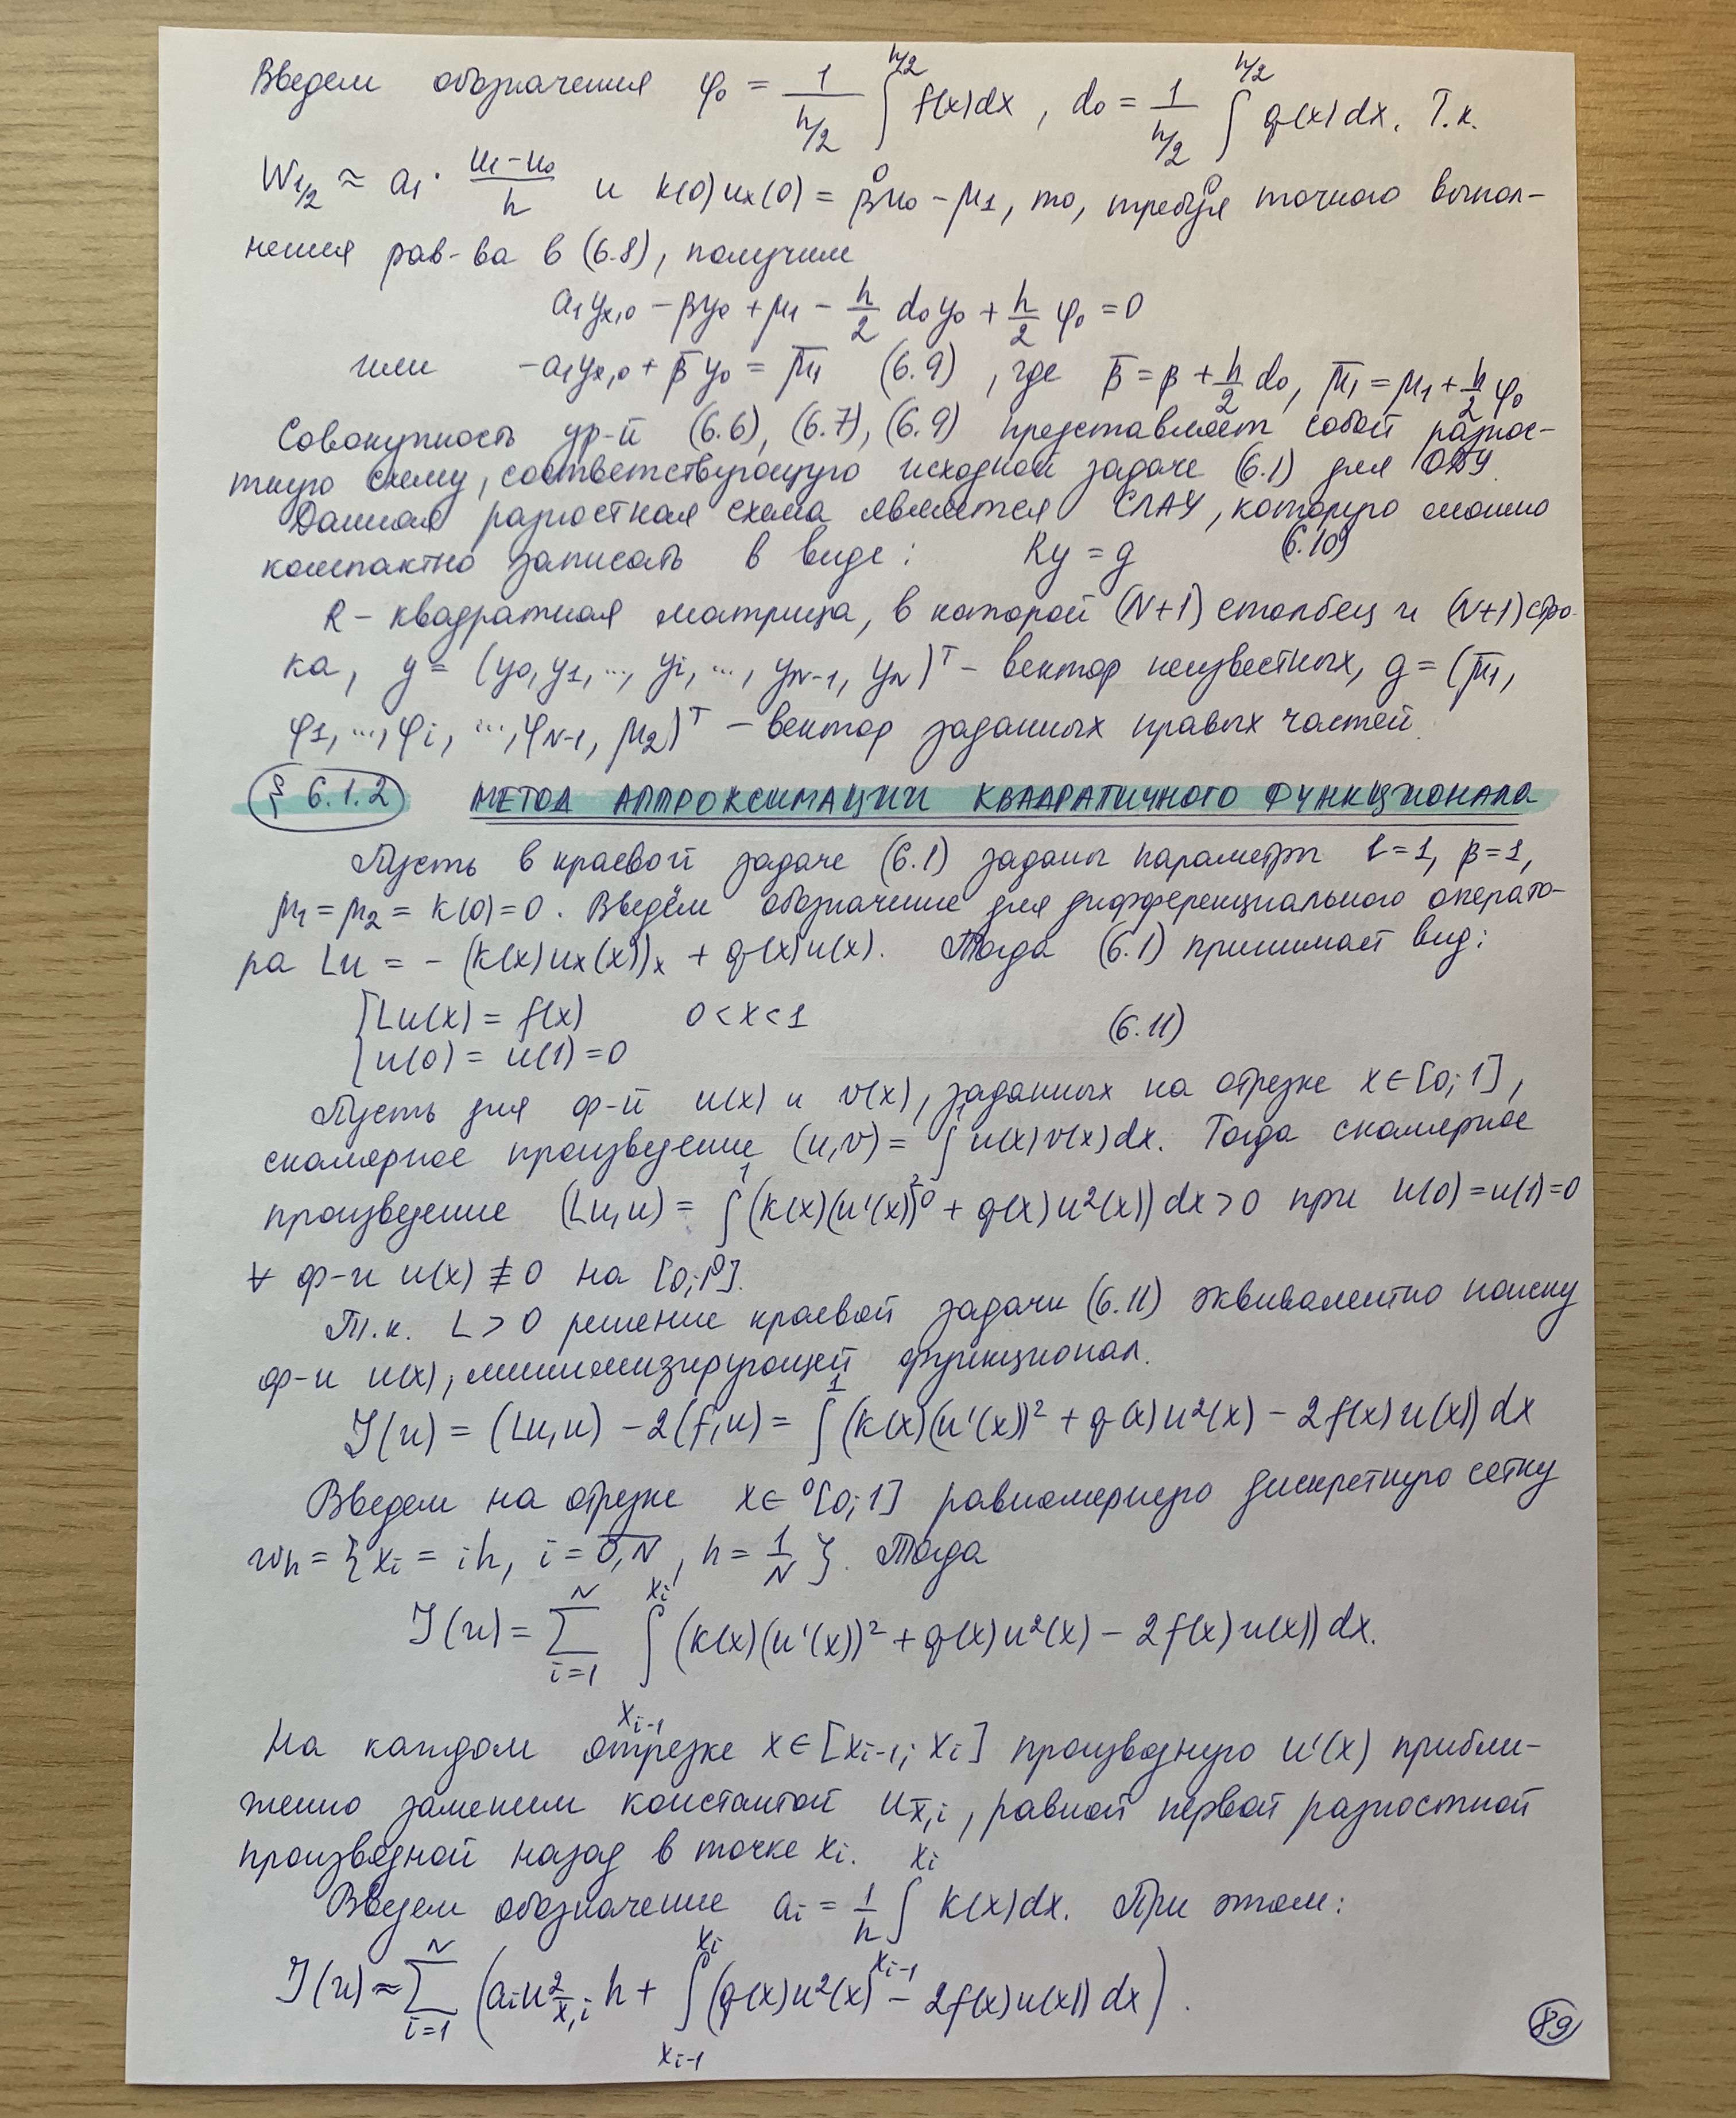 Введем обозначения φ₀ = 1/(h/2) ∫₀^{h/2} f(x)dx, d₀ = 1/(h/2) ∫₀^{h/2} q(x)dx. Т.к.
W_{1/2} ≈ a₁· (u₁-u₀)/h и k(0)uₓ(0) = βu₀ - μ₁, то, требуя точного выпол-
нения рав-ва в (6.8), получим
a₁y_{x,0} - βy₀ + μ₁ - h/2 d₀y₀ + h/2 φ₀ = 0
или -a₁y_{x,0} + β̄y₀ = μ̄₁ (6.9), где β̄ = β + h/2 d₀, μ̄₁ = μ₁ + h/2 φ₀
Совокупность ур-й (6.6), (6.7), (6.9) представляет собой разнос-
тную схему, соответствующую исходной задаче (6.1) для ОДУ.
Данная разностная схема является СЛАУ, которую можно
компактно записать в виде: Ry = g (6.10)
R – квадратная матрица, в которой (N+1) столбец и (N+1) стро-
ка, y = (y₀, y₁, ..., yᵢ, ..., y_{N-1}, y_N)ᵀ – вектор неизвестных, g = (μ̄₁,
φ₁, ..., φᵢ, ..., φ_{N-1}, μ₂)ᵀ – вектор заданных правых частей.
§ 6.1.2 МЕТОД АППРОКСИМАЦИИ КВАДРАТИЧНОГО ФУНКЦИОНАЛА
Пусть в краевой задаче (6.1) заданы параметры l=1, β=1,
μ₁ = μ₂ = k(0) = 0. Введём обозначение для дифференциального операто-
ра Lu = - (k(x)uₓ(x))ₓ + q(x)u(x). Тогда (6.1) принимает вид:
{ Lu(x) = f(x) 0 < x < 1 (6.11)
{ u(0) = u(1) = 0
Пусть для ф-й u(x) и v(x), заданных на отрезке x∈[0;1],
скалярное произведение (u,v) = ∫₀¹ u(x)v(x)dx. Тогда скалярное
произведение (Lu,u) = ∫₀¹ (k(x)(u'(x))² + q(x)u²(x))dx > 0 при u(0)=u(1)=0
∀ ф-и u(x) ≢ 0 на [0;1].
Т.к. L > 0 решение краевой задачи (6.11) эквивалентно поиску
ф-и u(x), минимизирующей функционал.
J(u) = (Lu,u) - 2(f,u) = ∫₀¹ (k(x)(u'(x))² + q(x)u²(x) - 2f(x)u(x))dx
Введем на отрезке x∈[0;1] равномерную дискретную сетку
wₕ = {xᵢ = ih, i = 0,N, h = 1/N}. Тогда
J(u) = Σ_{i=1}^{N} ∫_{x_{i-1}}^{xᵢ} (k(x)(u'(x))² + q(x)u²(x) - 2f(x)u(x))dx.
На каждом отрезке x∈[x_{i-1}; xᵢ] производную u'(x) прибли-
женно заменим константой u_{x̄,i}, равной первой разностной
производной назад в точке xᵢ.
Введем обозначение aᵢ = 1/h ∫_{x_{i-1}}^{xᵢ} k(x)dx. При этом:
J(u) ≈ Σ_{i=1}^{N} (aᵢu²_{x̄,i} h + ∫_{x_{i-1}}^{xᵢ} (q(x)u²(x) - 2f(x)u(x))dx).
89